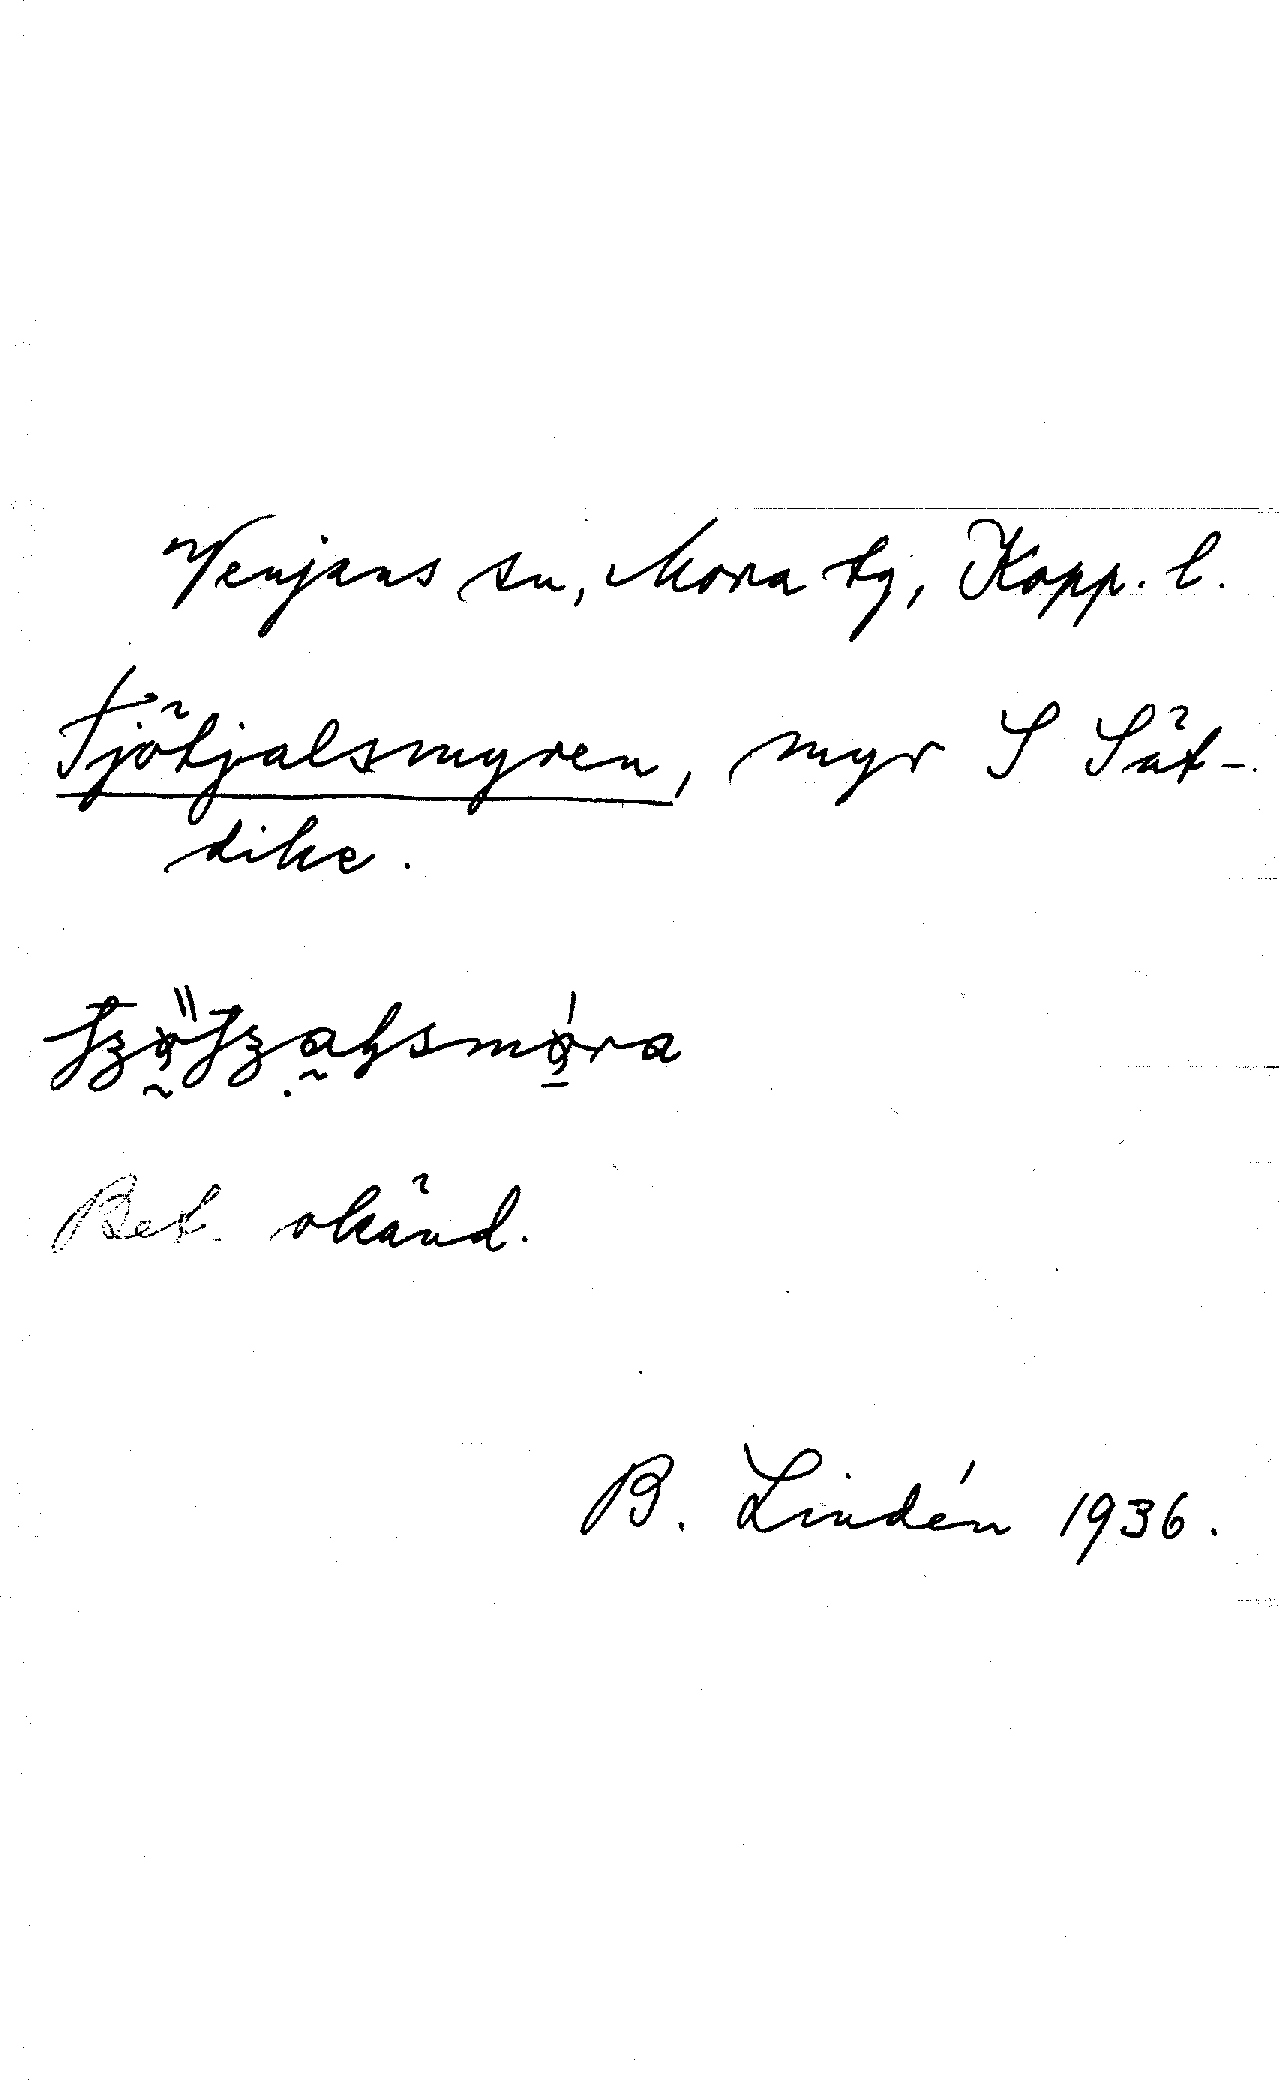 Venjans sn, Mora tg, Kopp. l.
Tjötjalsmyren, myr S Sät-
dike.
Bet. okänd.
B. Lindén 1936.